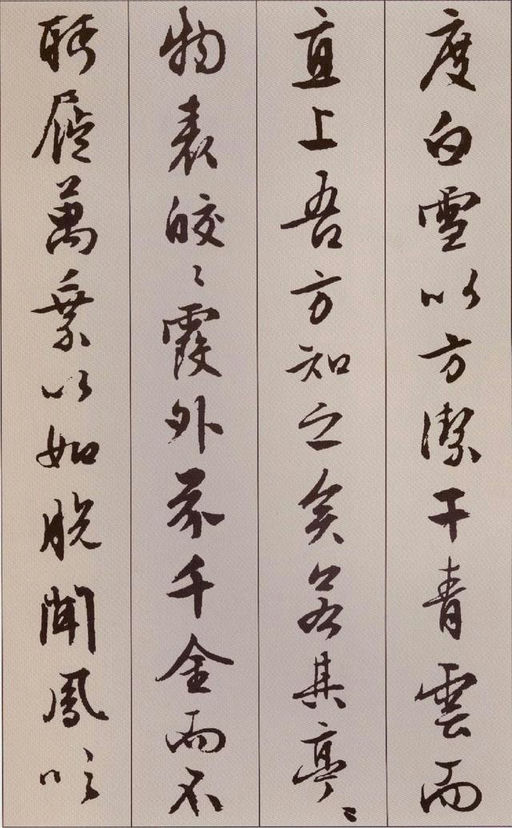 度白雪以方潔干青雲而
直上吾方知之矣若其亭〻
物表皎〻霞外芥千金而不
眄屣萬乘以如脫聞鳳吹